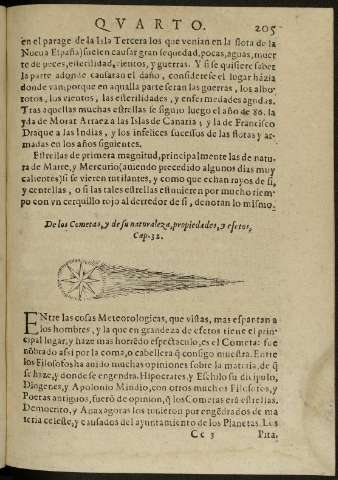 QVARTO. 205
en el parage de la Isla Tercera los que venian en la flota de la
Nueua España) suelen causar gran sequedad, pocas, aguas, muer
te de peces, esterilidad, vientos, y guerras. Y si se quisiere saber
la parte adonde causaran el daño, considerese el lugar házia
donde van; porque en aquella parte seran las guerras, los albo
rotos, los vientos, las esterilidades, y enfermedades agudas.
Tras aquellas muchas estrellas se siguio luego el año de 86. la
yda de Morat Arraez a las Islas de Canaria, y la de Francisco
Draque a las Indias, y los infelices sucessos de las flotas y ar-
madas en los años siguientes.
Estrellas de primera magnitud, principalmente las de natu-
ra de Marte, y Mercurio (auiendo precedido algunos dias muy
calientes) si se vieren rutilantes, y como que echan rayos de si,
y centellas, o si las tales estrellas estuuieren por mucho tiem-
po con vn cerquillo rojo al derredor de si, denotan lo mismo.
De los Cometas, y de su naturaleza, propiedades, y efetos,
Cap. 32.
ENtre las cosas Meteorologicas, que vistas, mas espantan a
los hombres, y la que en grandeza de efetos tiene el prin-
cipal lugar, y haze mas horrẽdo espectaculo, es el Cometa: fue
nõbrado assi por la coma, o cabellera q̃ consigo muestra. Entre
los Filosofos ha auido muchas opiniones sobre la materia, de q̃
se haze, y donde se engendra. Hipocrates, y Eschilo su dicipulo,
Diogenes, y Apolonio Mindio, con otros muchos Filosofos, y
Poetas antiguos, fuerõ de opinion, q̃ los Cometas erã estrellas.
Democrito, y Anaxagoras los tuuieron por engẽdrados de ma
teria celeste, y causados del ayuntamiento de los Planetas. Los
Cc 3 Pita-